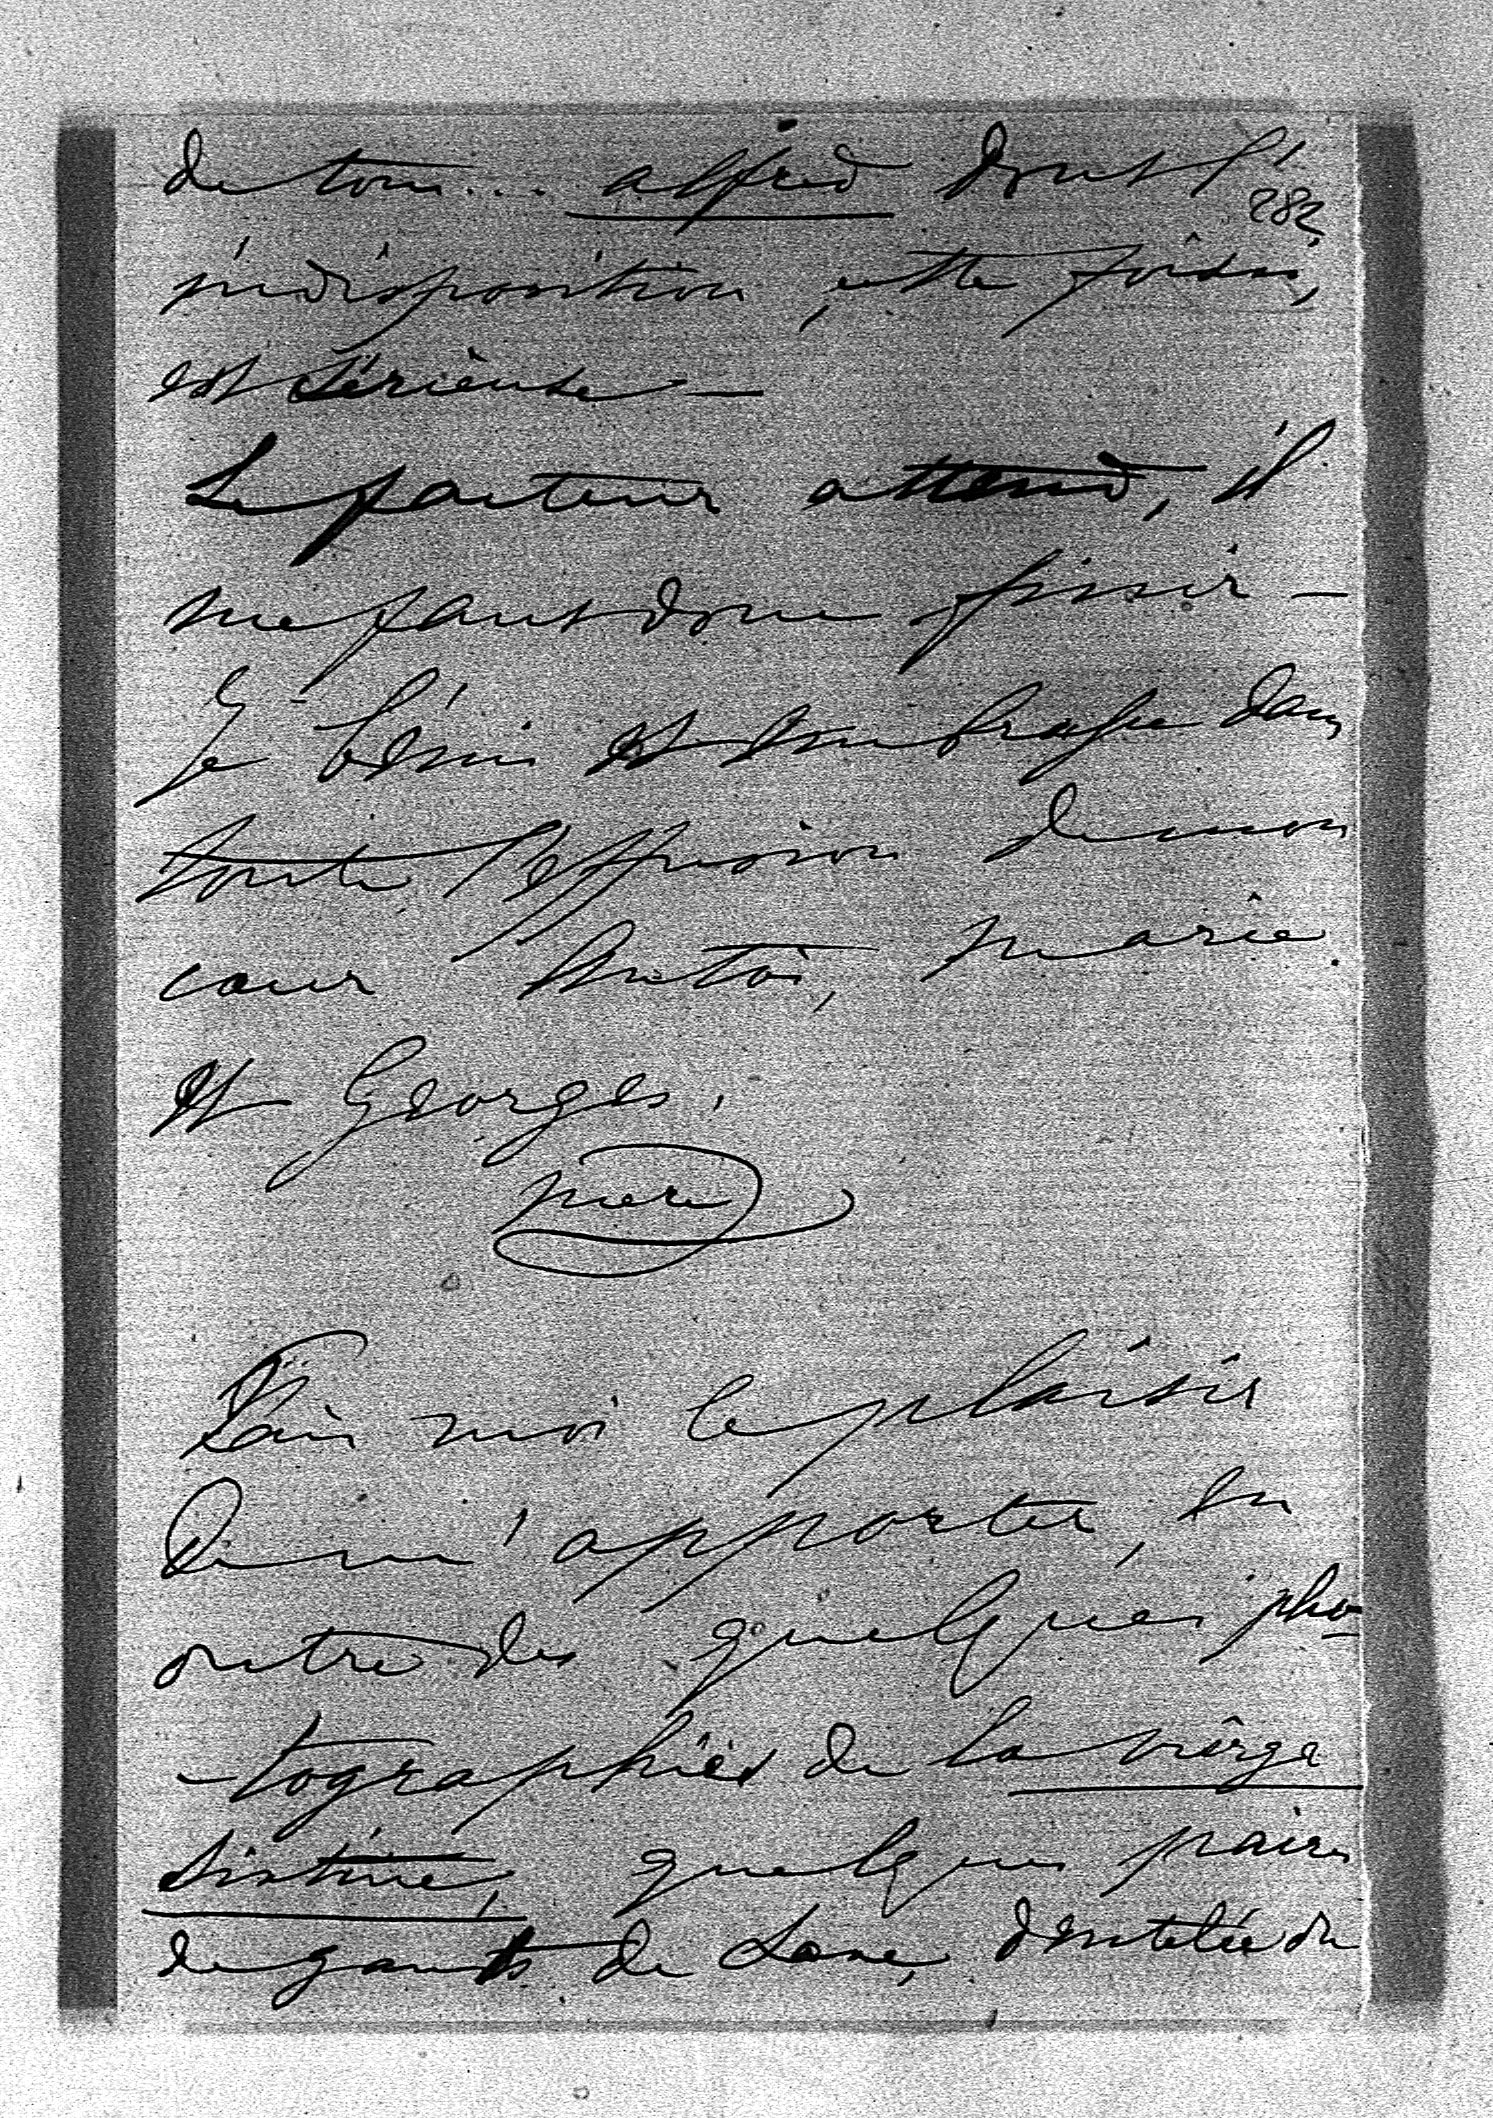 de tom... alfred dont l'
282
indisposition, cette fois,
est sérieuse —
Le facteur attend, il
me faut donc finir —
Je bénis et embrasse dans
toute l'effusion de mon
cœur Anto, Marie
et Georges.
mère
Fais moi le plaisir
De m'apporter, en
outre des quelques pho-
-tographies de la vierge
Sixtine, quelques paires
de gants de Saxe, dentelée ou